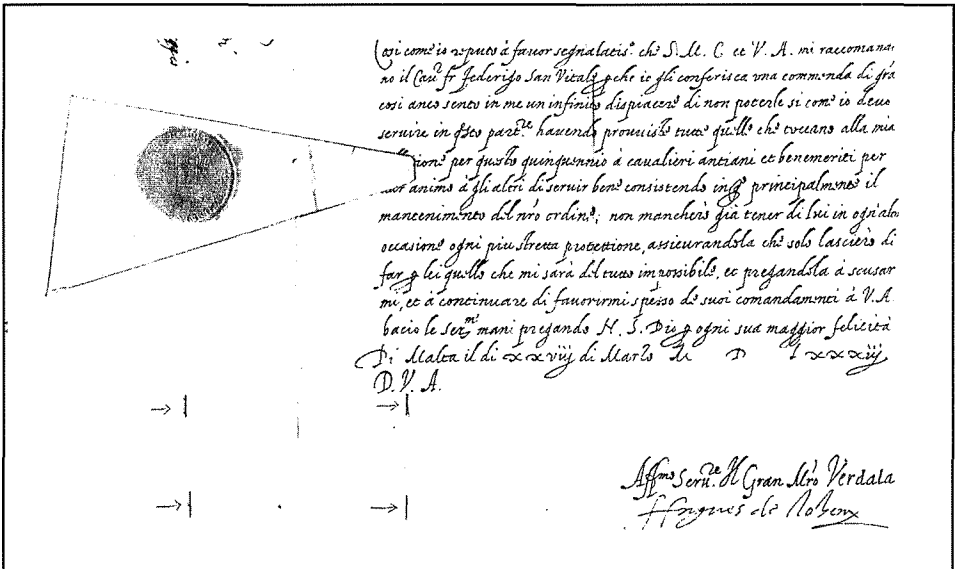 Cosi come io reputo à favor segnalatis.º che S. M. C. et V. A. mi raccomana
no il Cau.re fr Federigo San Vitale p che io gli conferisca una commenda di gra
cosi anco sento in me un infinito dispiacere di non poterle si come io devo
servire in q.sto part.re havendo proviste tutte quelle che toccano alla mia
per questo quinquennio à cavalieri antiani et benemeriti per
animo à gli altri di servir bene consistendo in principalmente il
mantenimento del nro ordine; non mancherò già tener di lui in ogn'
occasione ogni piu stretta protettione, assicurandola che solo lascierò di
far p lei quello che mi sarà del tutto impossibile, et pregandola à scusar
mi, et à continuare di favorirmi spesso de suoi comandamenti à V. A.
bacio le Ser.me mani pregando N. S. Dio p ogni sua maggior felicità
Di Malta il di xxviij di Marzo M D lxxxiij
D. V. A.
Aff.mo Serv.re Il Gran Mro Verdala